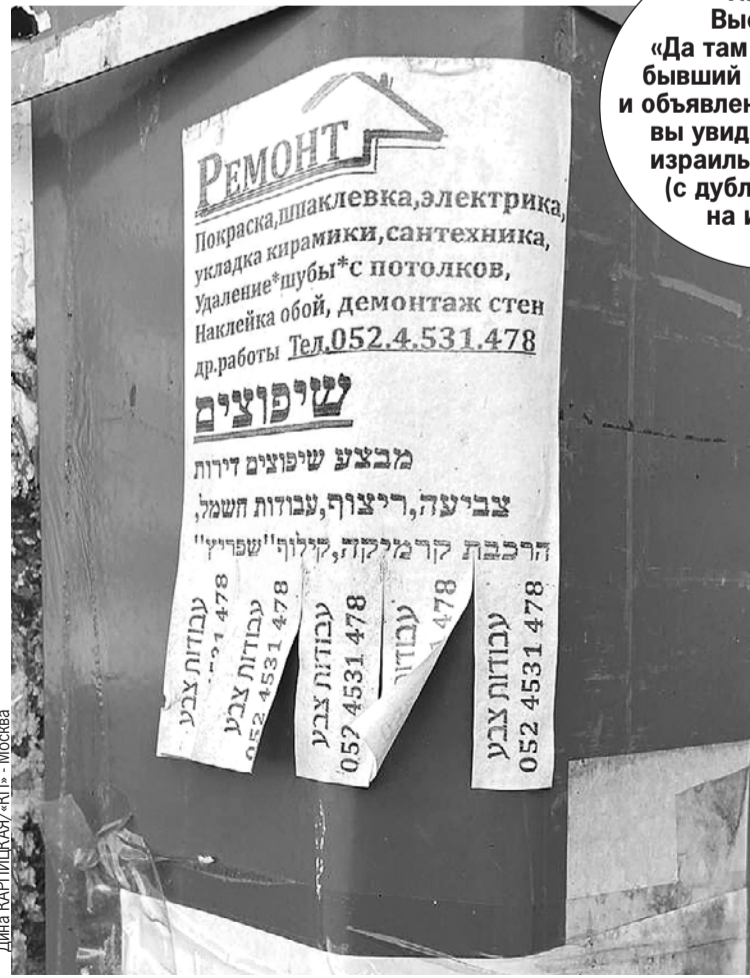 Выс
«Да там
бывший
и объявлен
вы увид
израиль
(с дубл
на и
РЕМОНТ
Покраска,шпаклевка,электрика,
укладка кирамики,сантехника,
Удаление*шубы*с потолков,
Наклейка обой, демонтаж стен
др.работы Тел.052.4.531.478
שיפוצים
מבצע שיפוצים דירות
צביעה,ריצוף,עבודות חשמל,
הרכבת קרמיקה,קילוף"שפריץ"
עבודות צבע
531 478
עבודות צבע
052 4531 478
עבודות צבע
052 4531 478
עבודות
478
עבודות צבע
052 4531 478
Дина КАРПИЦКАЯ/«КП» - Москва